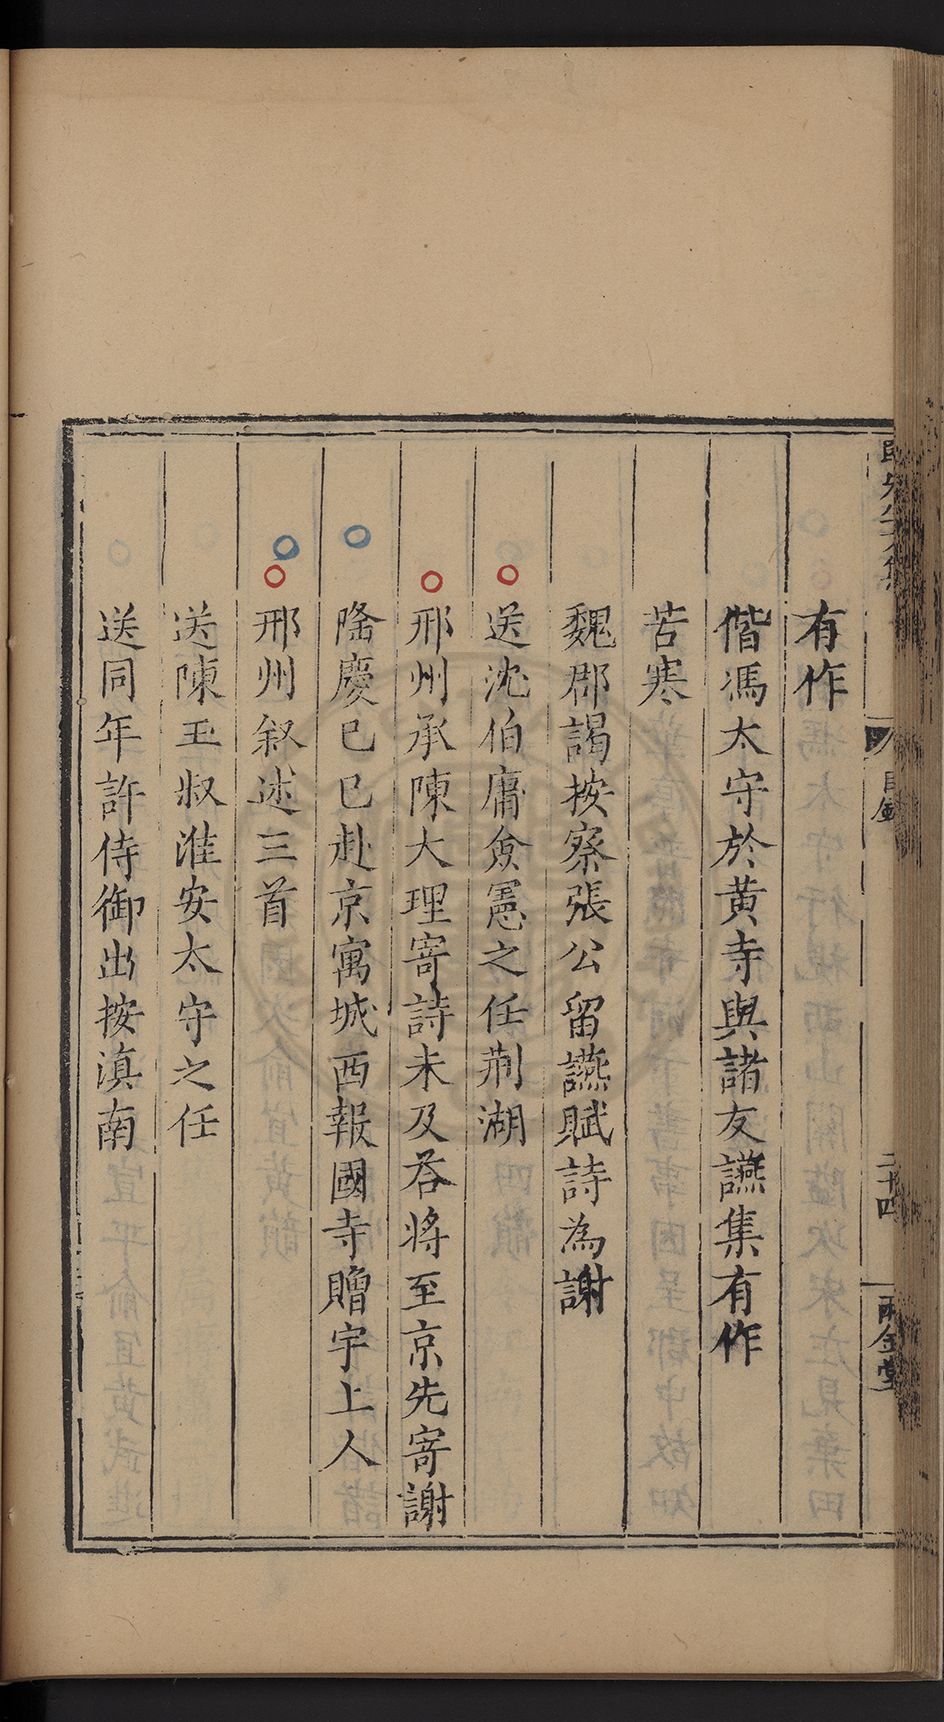 有作
偕馮太守於黄寺與諸友讌集有作
苦寒
魏郡謁按察張公留讌賦詩為謝
送沈伯庸僉憲之任荆湖
邢州承陳大理寄詩未及荅將至京先寄謝
隆慶己巳赴京寓城西報國寺贈宇上人
邢州叙述三首
送陳玉叔淮安太守之任
送同年許侍御出按滇南
目錄
二十四
雨金堂